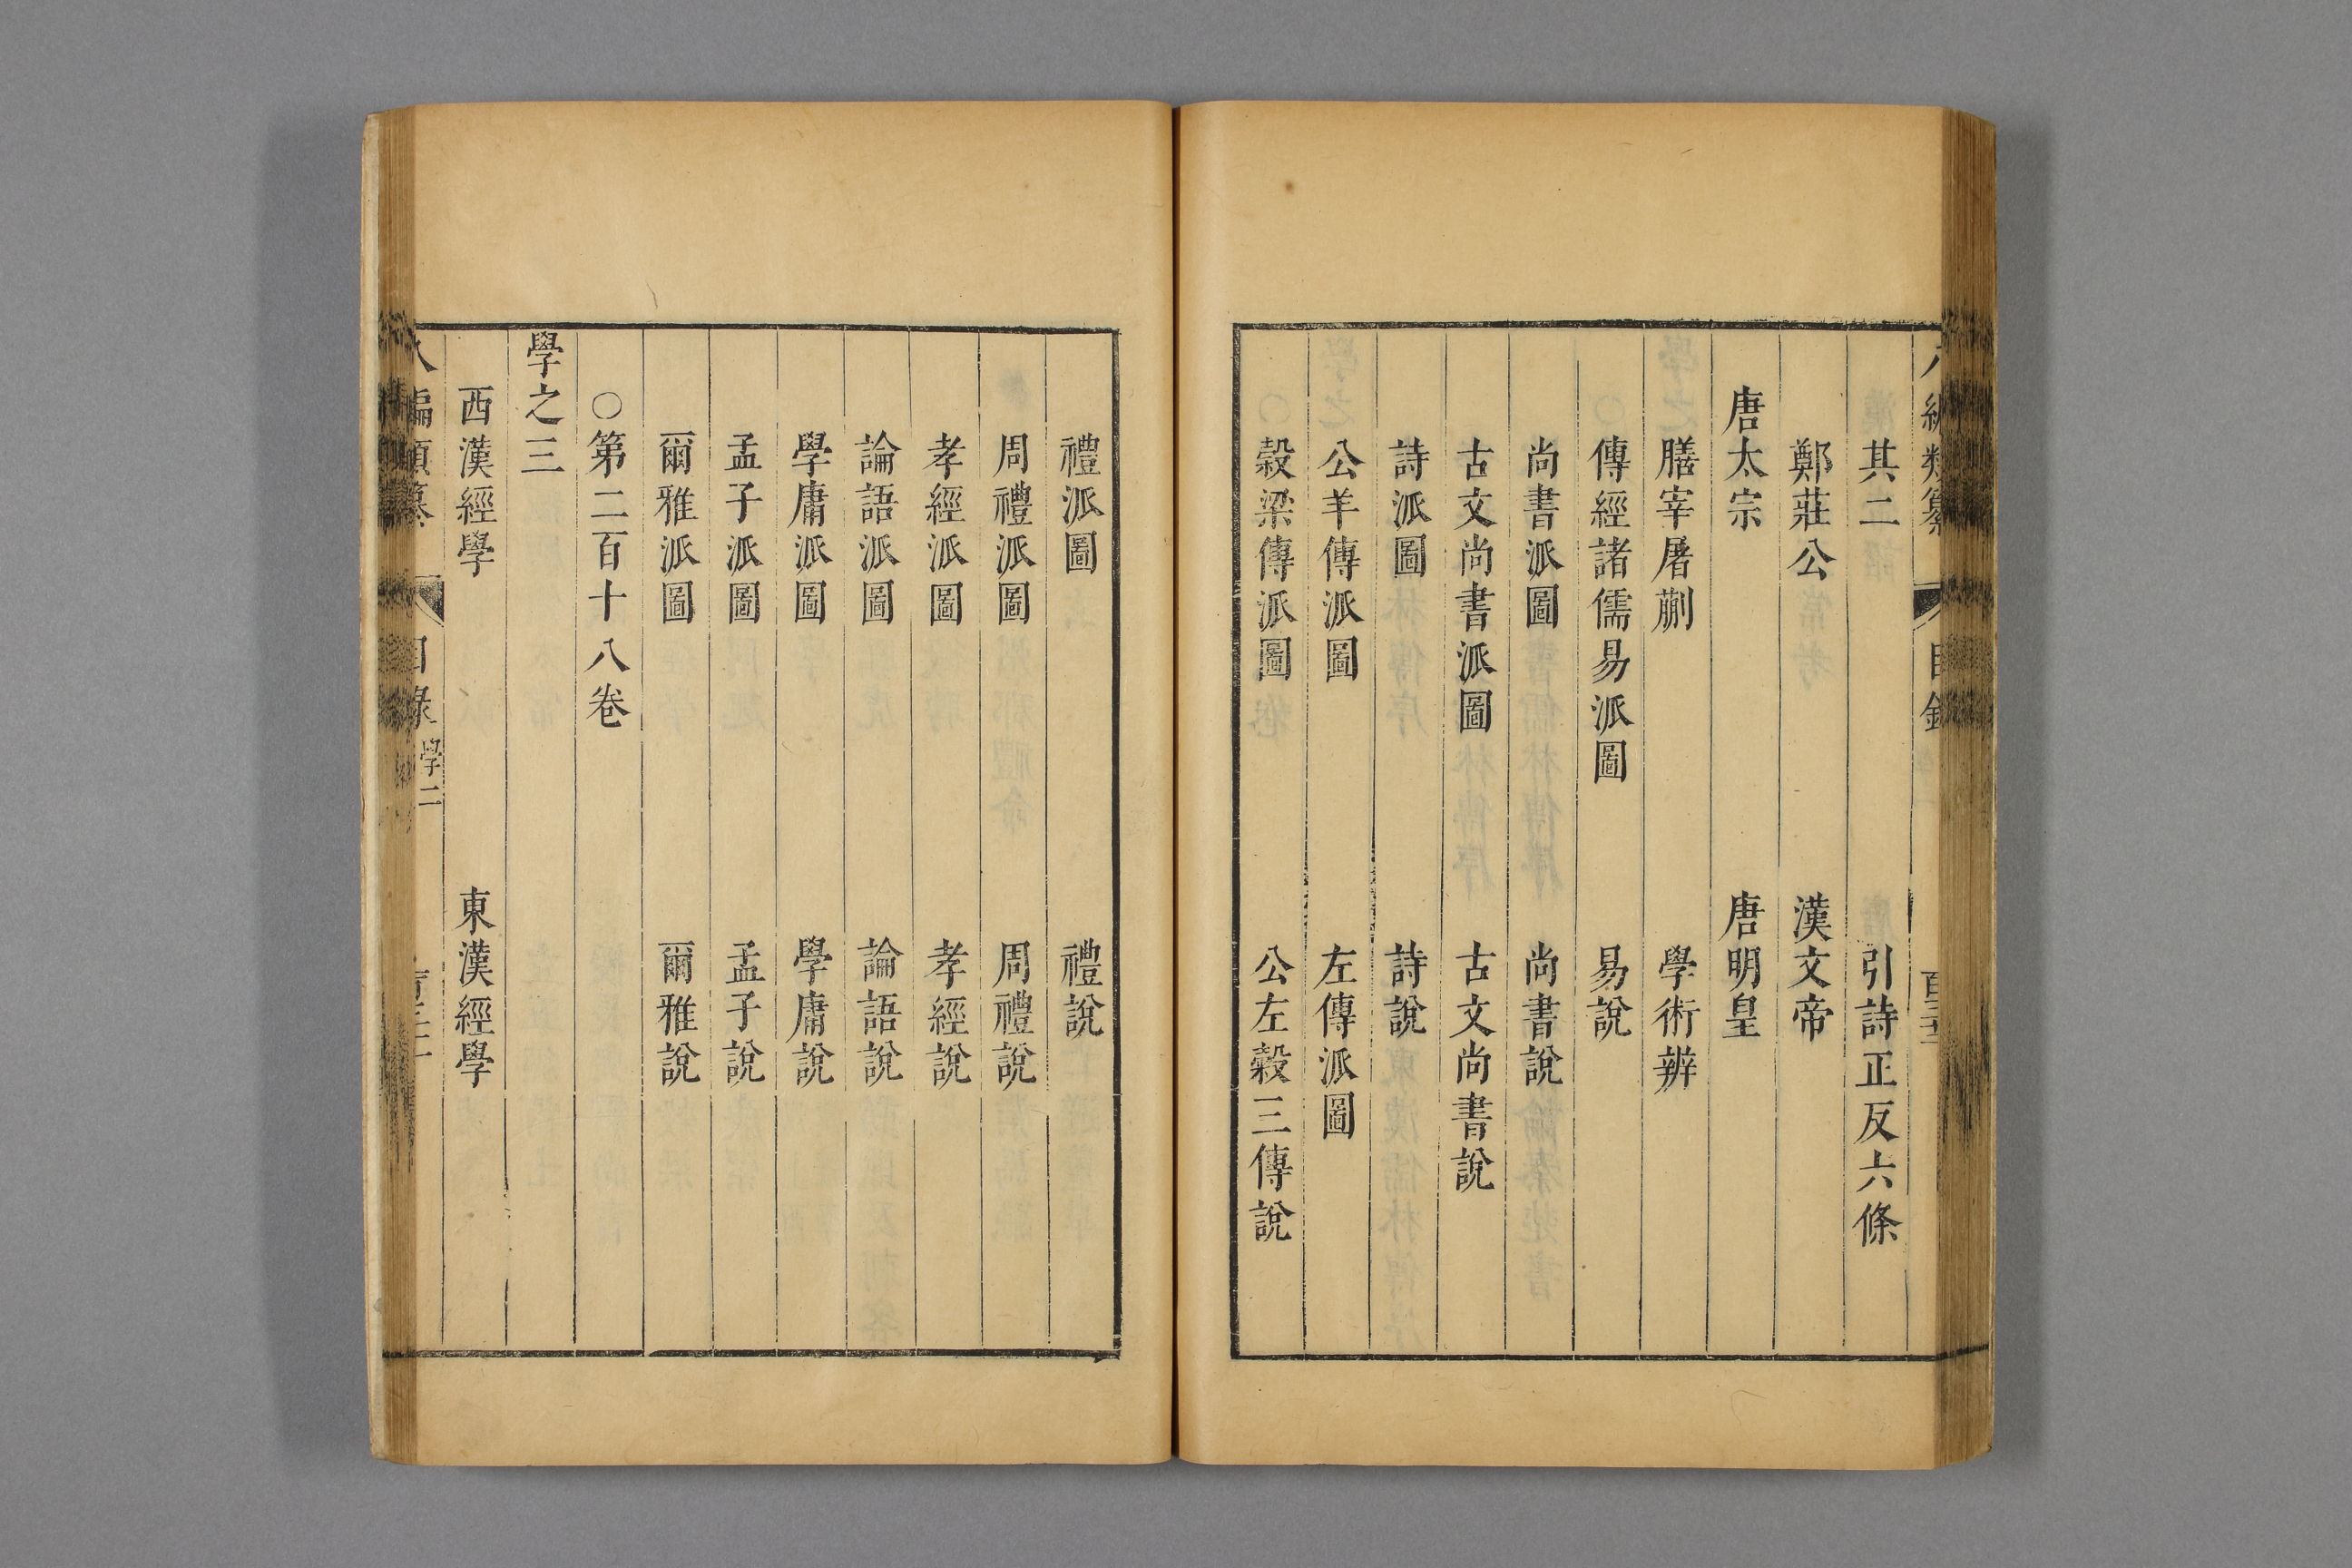 其二　引詩正反六條
鄭莊公　漢文帝
唐太宗　唐明皇
膳宰屠蒯　學術辨
傳經諸儒易派圖　易說
尚書派圖　尚書說
古文尚書派圖　古文尚書說
詩派圖　詩說
公羊傳派圖　左傳派圖
穀梁傳派圖　公左穀三傳說
禮派圖　禮說
周禮派圖　周禮說
孝經派圖　孝經說
論語派圖　論語說
學庸派圖　學庸說
孟子派圖　孟子說
爾雅派圖　爾雅說
○第二百十八卷
學之三
西漢經學　東漢經學
八編類纂　目錄　學二